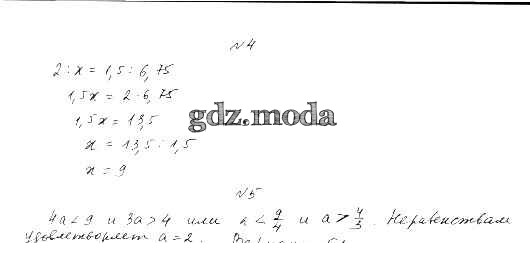 №4
2 : x = 1,5 : 6,75
1,5x = 2 · 6,75
1,5x = 13,5
gdz.moda
x = 13,5 : 1,5
x = 9
№5
4a < 9 и 3a > 4 или a < 9/4 и a > 4/3. Неравенствам
удовлетворяет a = 2.